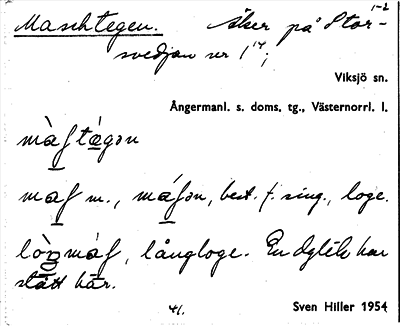 1-2
Maschtegen. åker på Stor-
svedjan nr 1¹⁴;
Viksjö sn.
Ångermanl. s. doms. tg., Västernorrl. l.
màʃtá̱gən
ma̱ʃ m., má̱ʃən, best. f. sing., loge.
lòŋmàʃ, långloge. En dylik har
stått här.
41. Sven Hiller 1954